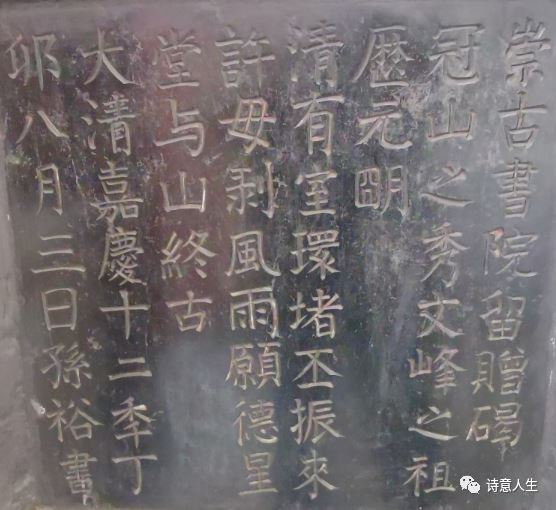 崇古書院留贈碣
冠山之秀文峰之祖
歷元明
清有室環堵丕振來
許毋剥風雨願德星
堂与山終古
大清嘉慶十二年丁
卯八月三日孫裕書
诗意人生